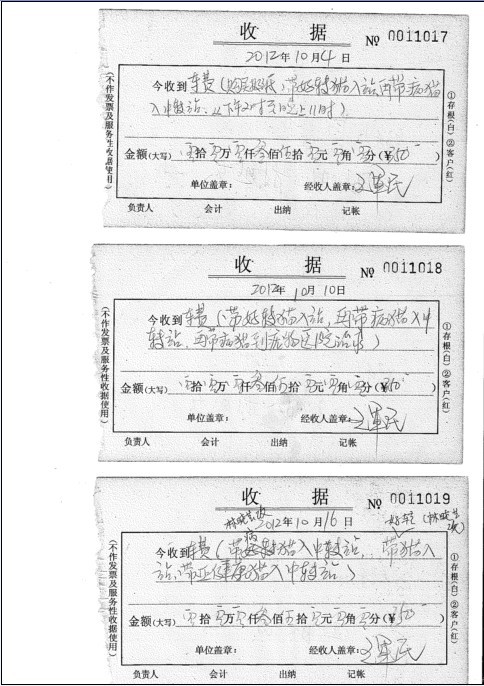 收 据 № 0011017
2012年10月4日
今收到车费(
带好转猫入站,再带病猫
入中转站,从下午2时到晚上11时)
金额(大写) 零拾零万零仟叁佰伍拾零元零角零分(¥350
单位盖章: 经收人盖章:
负责人 会计 出纳 记帐
(不作发票及服务性收据使用)
①存根(白) ②客户(红)
收 据 № 0011018
2012年10月10日
今收到车费(带好转猫入站,再带病猫入中
转站,再带病猫到宠物医院治
金额(大写) 零拾零万零仟叁佰伍拾零元零角零分(¥350
单位盖章: 经收人盖章:
负责人 会计 出纳 记帐
(不作发票及服务性收据使用)
①存根(白) ②客户(红)
收 据 № 0011019
2012年10月16日
病
好转
今收到车费(带好转猫入中转站,带猫入
站,带 健康猫入中转站)
金额(大写) 零拾零万零仟叁佰伍拾零元零角零分(¥350
单位盖章: 经收人盖章:
负责人 会计 出纳 记帐
(不作发票及服务性收据使用)
①存根(白) ②客户(红)